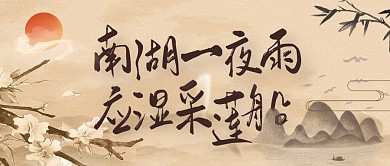 南湖一夜雨
应湿采莲船